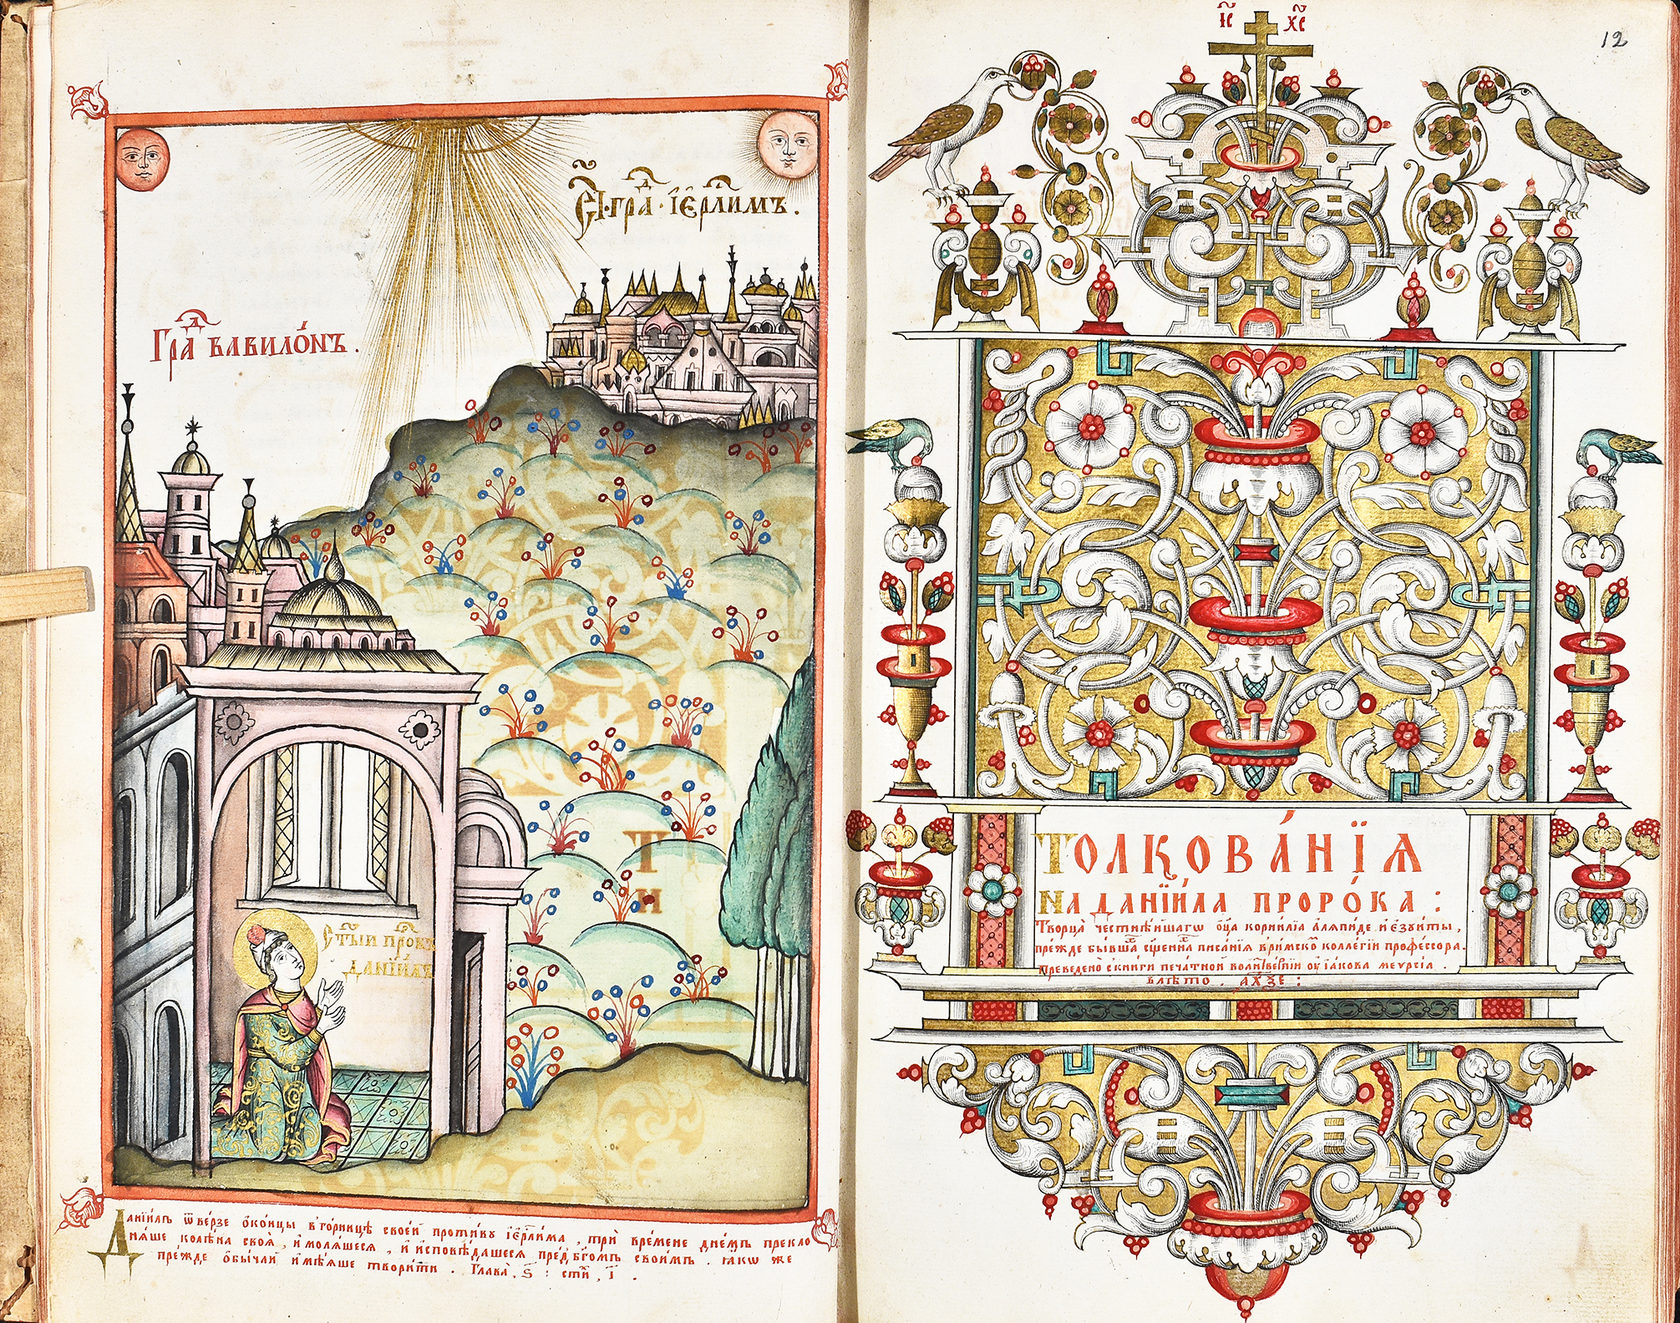 С҃ты́й гра́д І҆ерⷭ҇ли́мъ.
Гра́д вавилѡ́нъ.
С҃тыи прⷪ҇ро́къ
данїи́лъ
Данїи́лъ ѿве́рзе ѻ҆ко́нцы в̾го́рницѣ свое́й проти́вꙋ і҆ерⷭ҇ли́ма, трѝ вре́мене дне́мъ прекло
нѧ́ше кѡлѣ́на своѧ̀, и҆ молѧ́шесѧ, и҆ и҆сповѣ́дашесѧ пред̾ бг҃омъ свои́мъ. ꙗ҆́коже
пре́жде ѻ҆бы́чай и҆мѣ́ѧше твори́ти. Глава̀, ѕ҃: сти́х, і҃.
І҃с Х҃с
12
Толкова́нїѧ
На Данїи́ла проро́ка:
Творца̀ честнѣ́йшагѡ ѻ҆ц҃а̀ корни́лїа а҆лѧпи́де и҆є҆зꙋи́ты,
пре́жде бы́вша сщ҃е́нна писа́нїѧ в̾ри́мскої колле́гїи профе́ссора.
Преведено̀ с̾кни́ги печа́тной
і҆а́кова меꙋ́рсїа
в̾лѣ́то. а҂хз҃е: